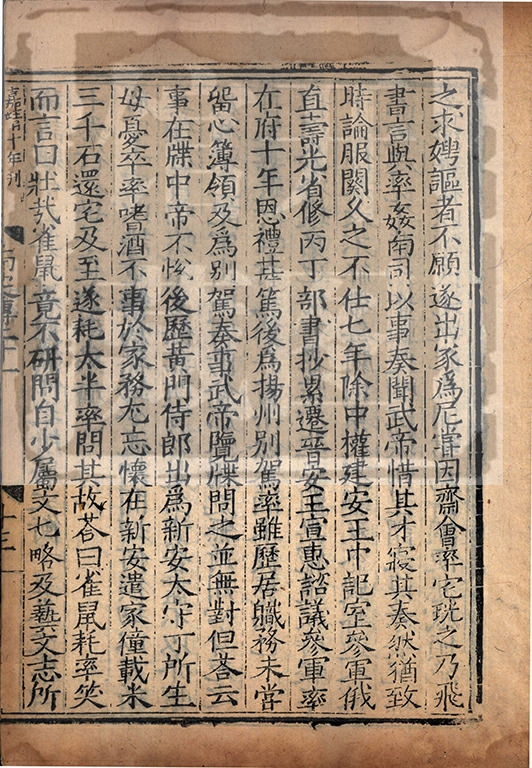 之求娉謳者不願遂出家爲尼嘗因齋會率宅玩之乃飛
書言與率姦南司以事奏聞武帝惜其才寢其奏然猶致
時論服闋久之不仕七年除中權建安王中記室參軍俄
直壽光省修丙丁部書抄累遷晉安王宣惠諮議參軍率
在府十年恩禮甚篤後爲揚州別駕率雖歷居職務未嘗
留心簿領及爲別駕奏事武帝覽牒問之並無對但荅云
事在牒中帝不悅後歷黃門侍郎出爲新安太守丁所生
母憂卒率嗜酒不事於家務尤忘懷在新安遣家僮載米
三千石還宅及至遂耗太半率問其故荅曰雀鼠耗率笑
而言曰壯哉雀鼠竟不研問自少屬文七略及藝文志所
嘉靖十年刊